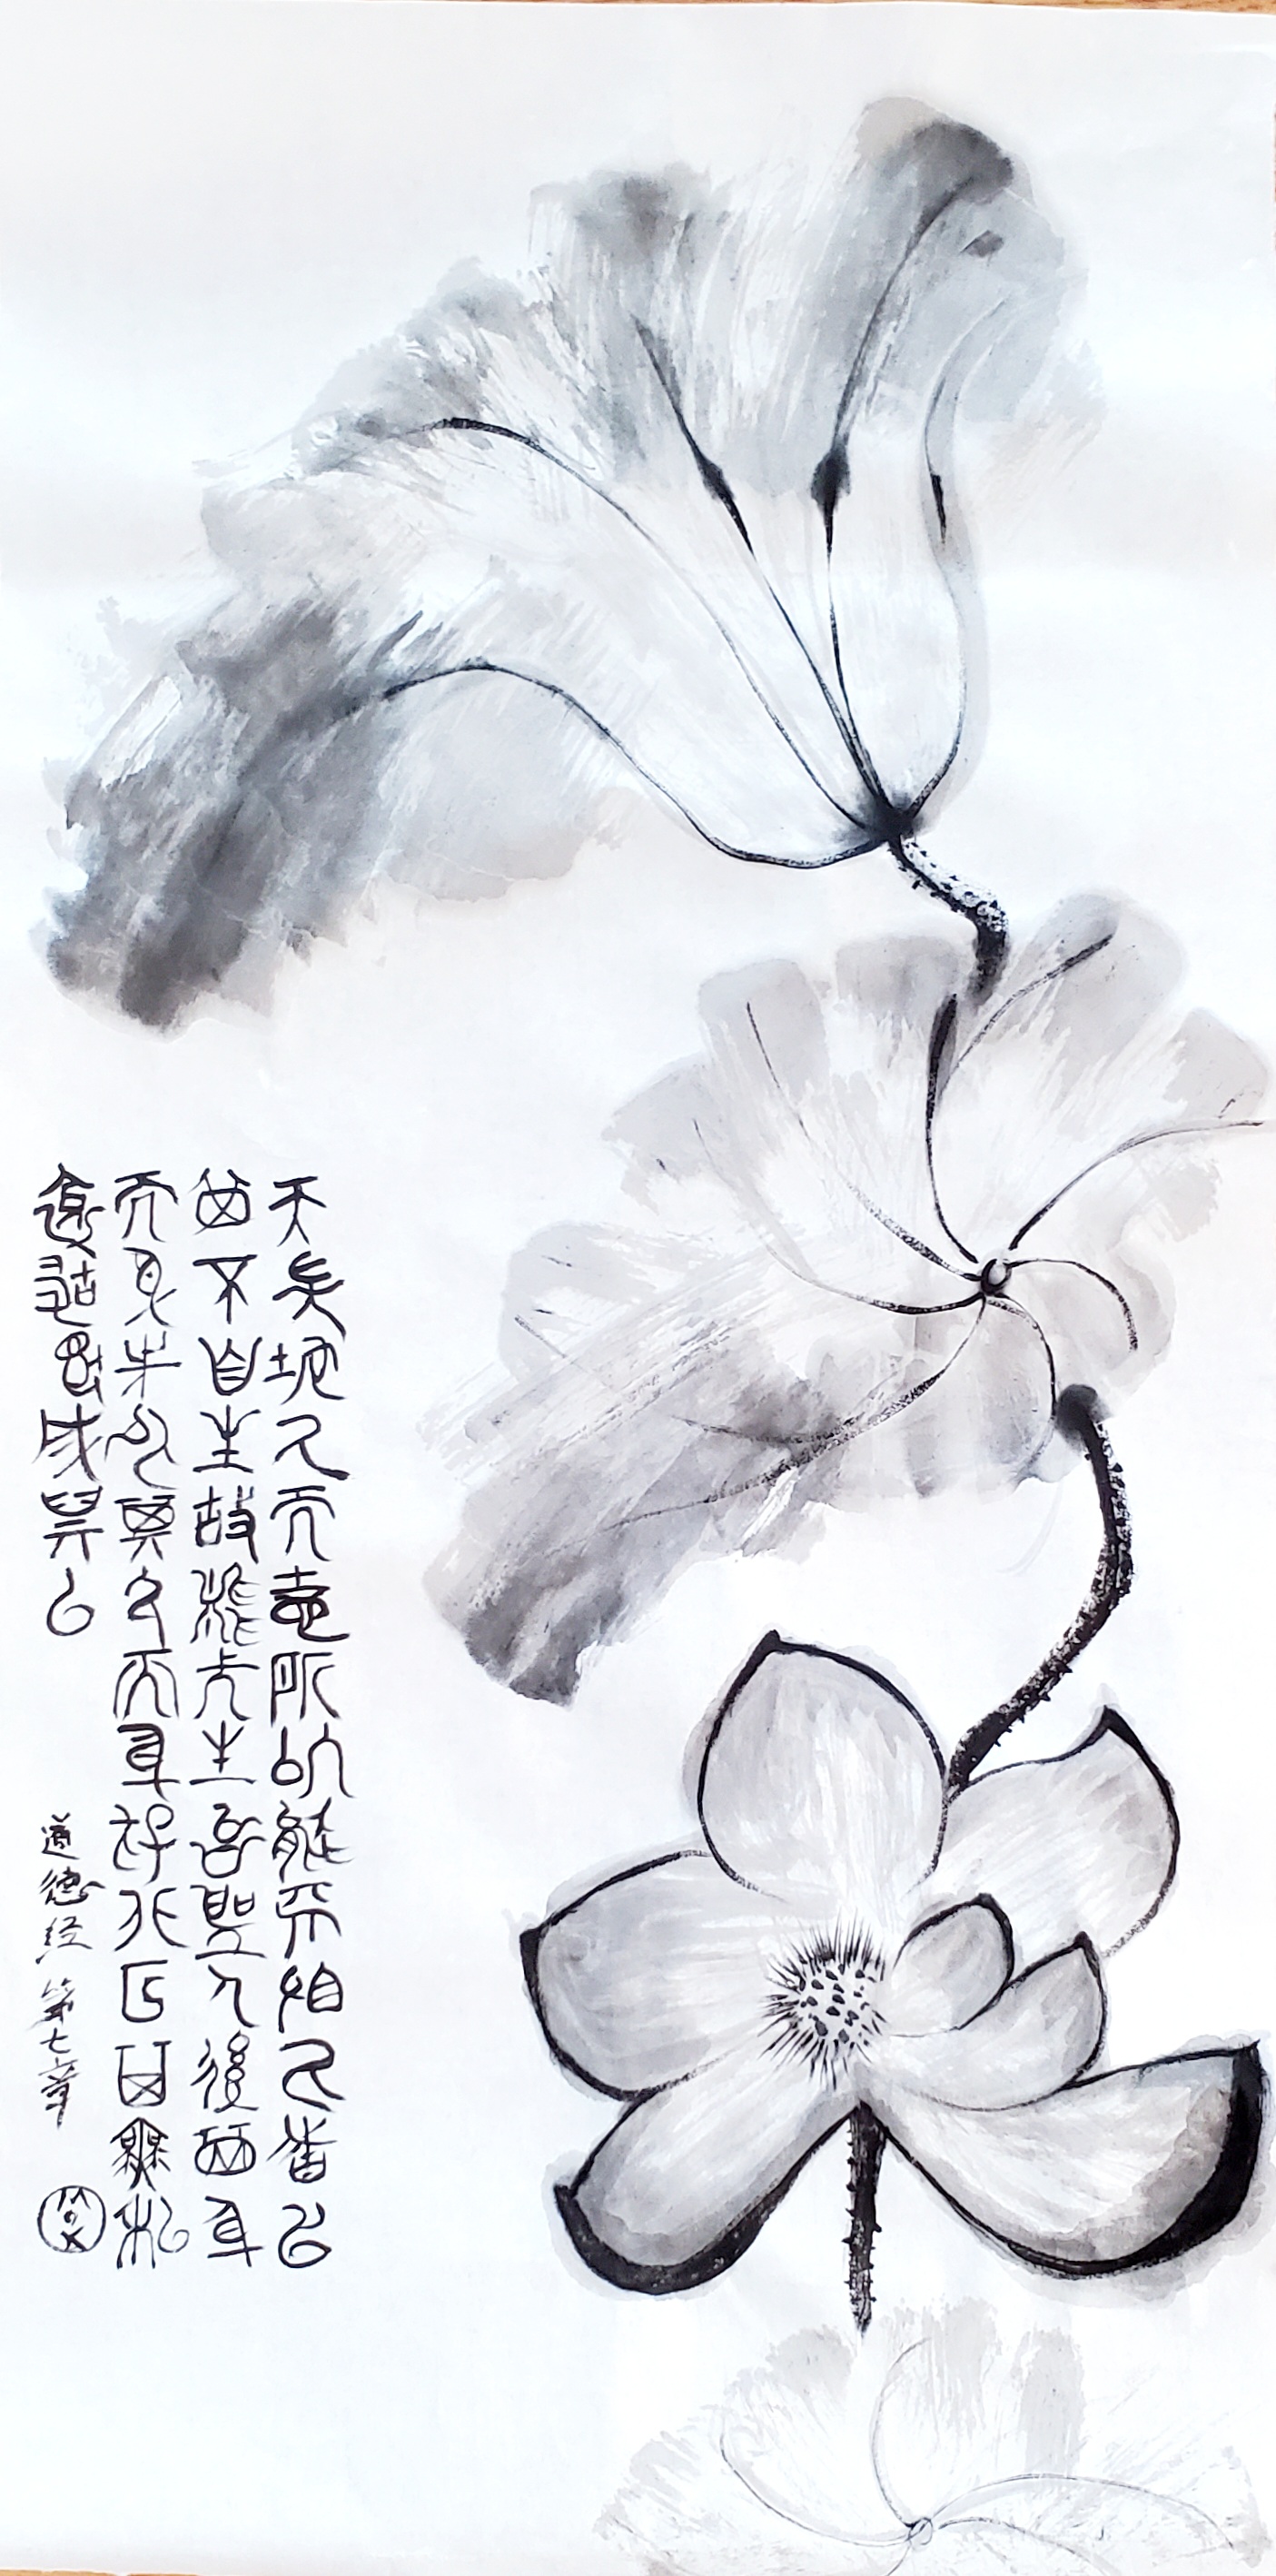 天長地久天地所以能長且久者以
其不自生故能長生是聖人後其身
而身先外其身而身存非以其無私
故能成其私
道德经 第七章